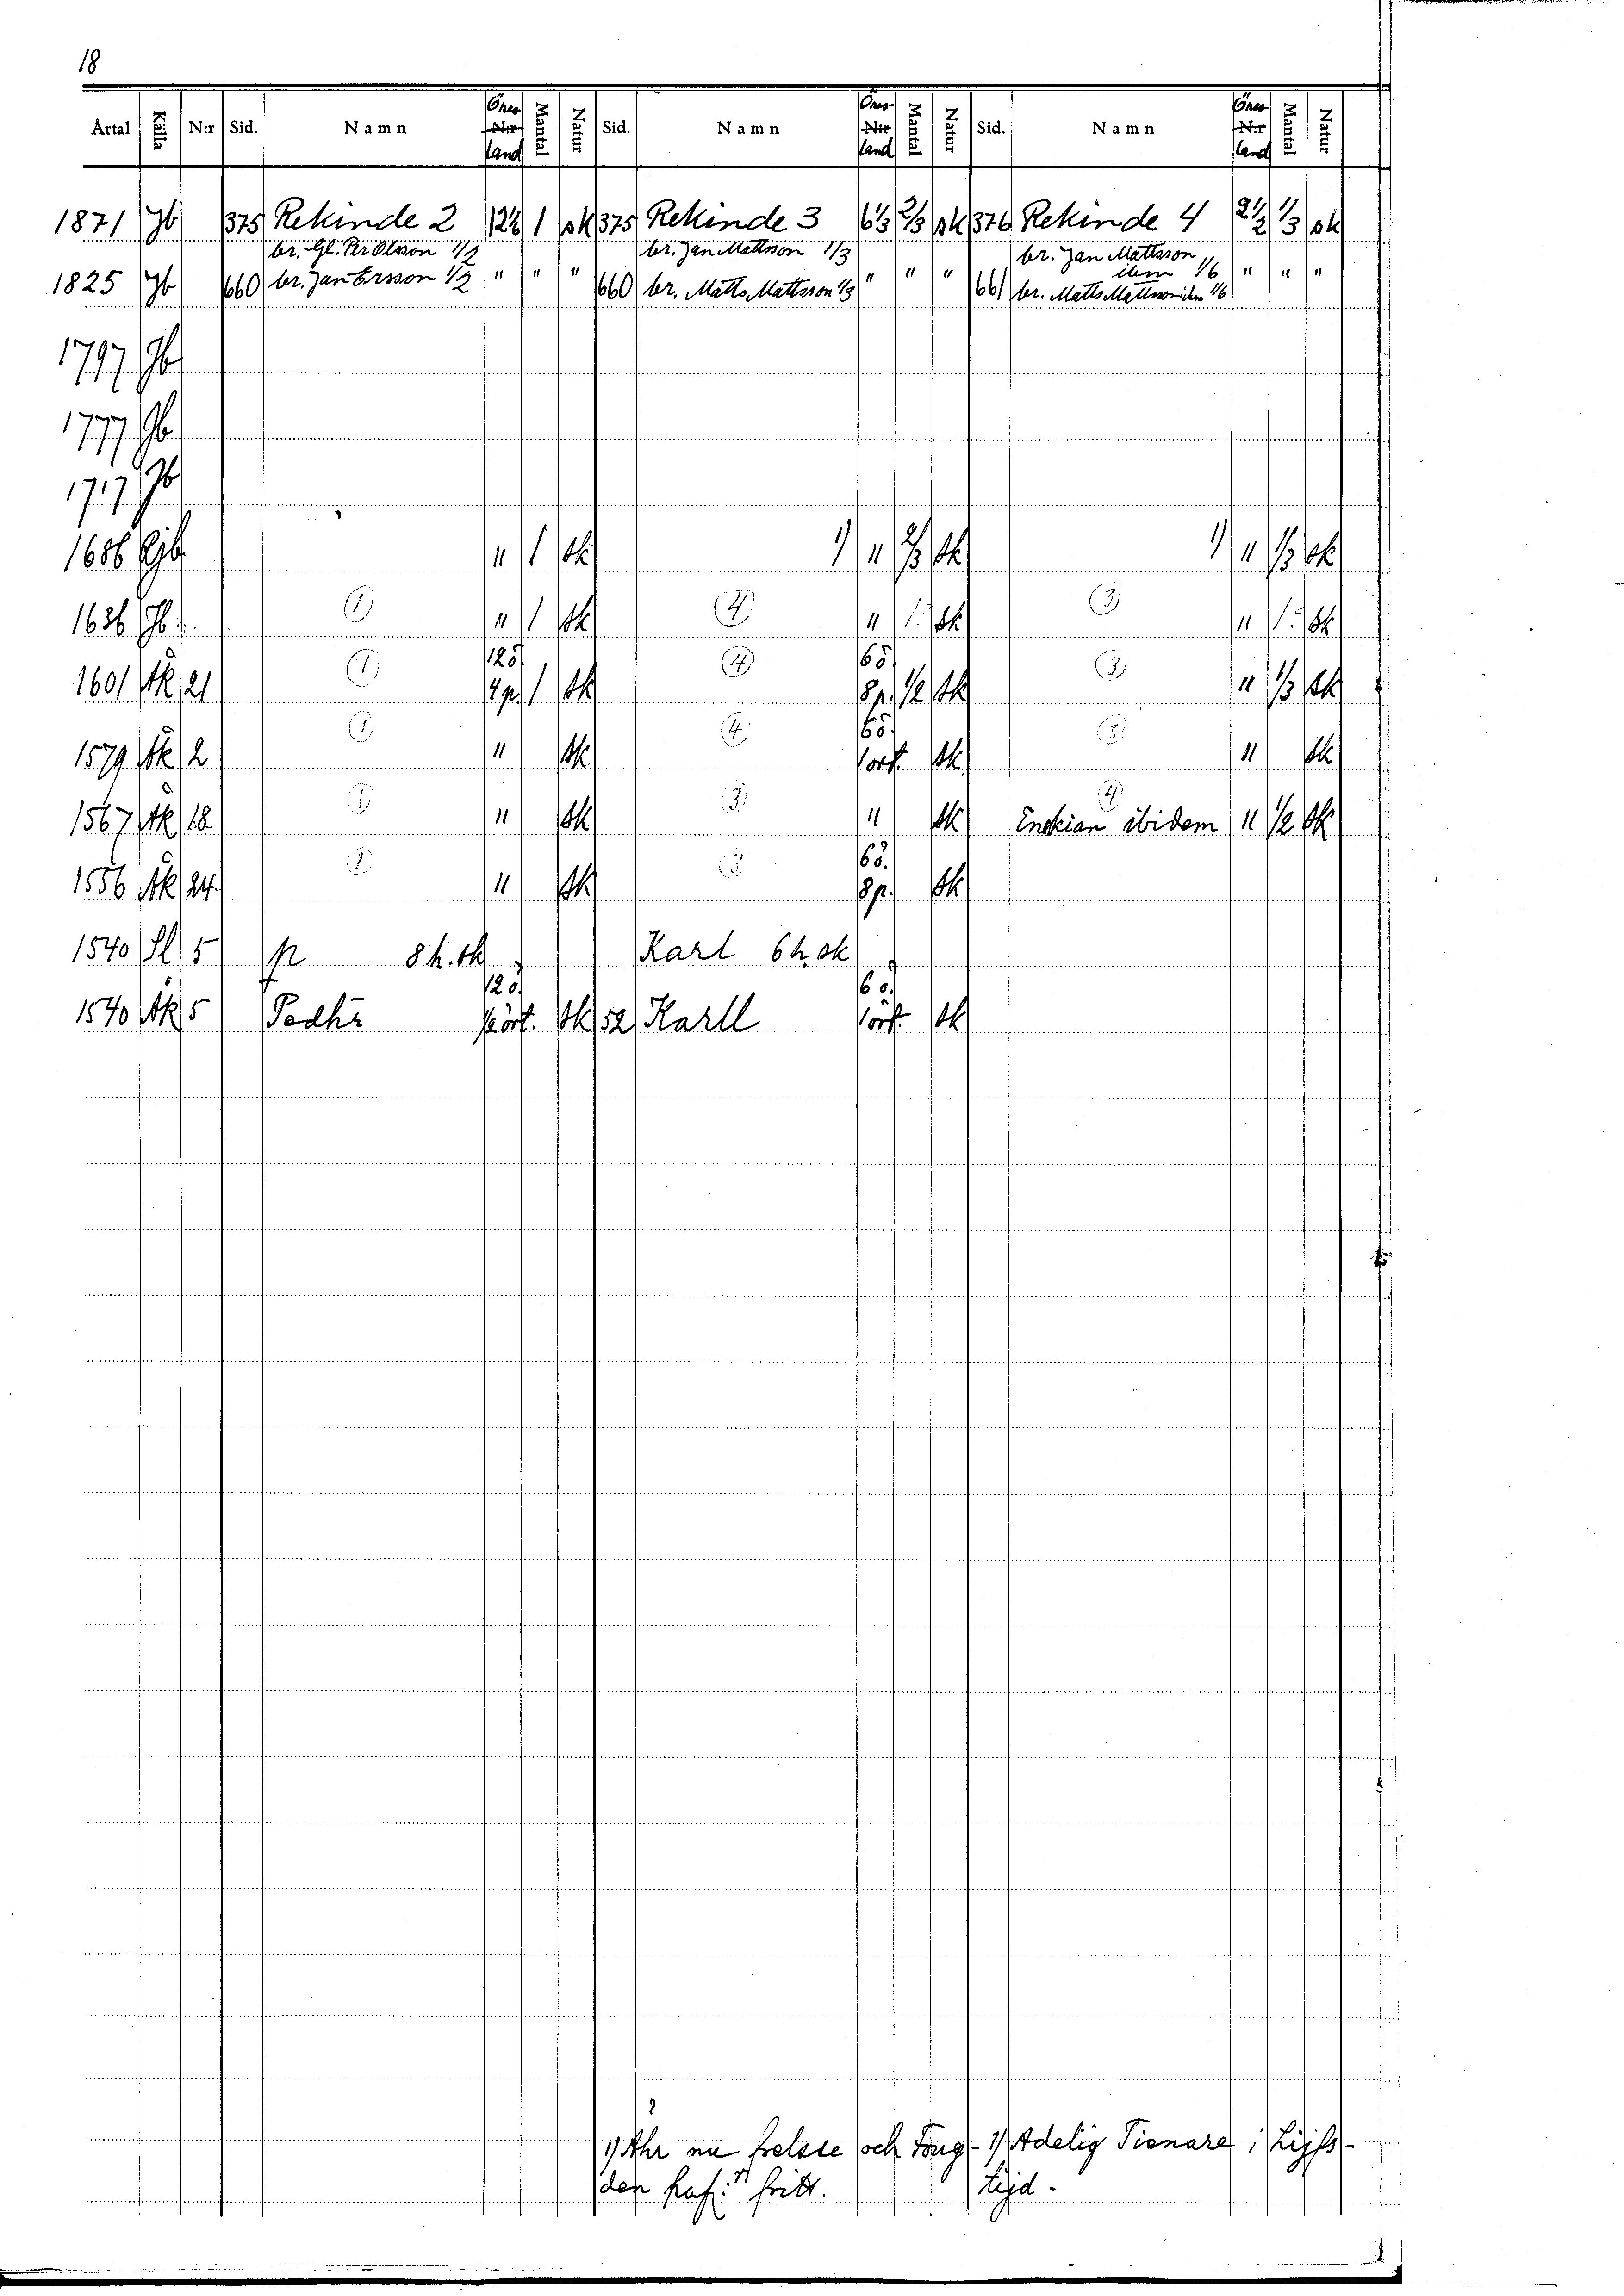 18
Årtal Källa N:r Sid. Namn Öres N:r land Mantal Natur Sid. Namn Öres N:r land Mantal Natur Sid. Namn Öres N:r land Mantal Natur
1871 Jb 375 Rekinde 2 1 sk 375 Rekinde 3 6 1/3 2/3 sk 376 Rekinde 4 2 1/2 1/3 sk
br. Gl. Per Olsson 1/2 br. Jan Mattsson 1/3 br. Jan Mattsson
1825 Jb 660 br. Jan Ersson 1/2 " " " 660 br. Matts Mattsson 1/3 " " " 661 idem 1/6 " " "
br. Matts Mattsson idm 1/6
1797 Jb
1777 Jb
1717 Jb
1686 " 1 sk 1) " 2/3 sk 1) " 1/3 sk
1626 Jb 1 " 1 sk 4 " 1 sk 3 " 1 sk
12ö. 6ö.
1601 Åk 21 1 4 p. 1 sk 4 8 p. 1/2 sk 3 " 1/3 sk
6ö.
1579 Åk 2 1 " sk 4 1 ört. sk 3 " sk
1567 Åk 18 1 " sk 3 " sk 4 Enckian ibidem " 1/2 sk
6ö.
1556 Åk 24 1 " sk 3 8 p. sk
1540 Sl 5 p 8 h. sk Karl 6 h. sk
12ö. 6ö.
1540 Åk 5 Padhr ört. sk 52 Karll 1 ört. sk
1) Ähr nu frelsse och 1) Adelig Tienare i Lijfs-
den fritt. tijd.